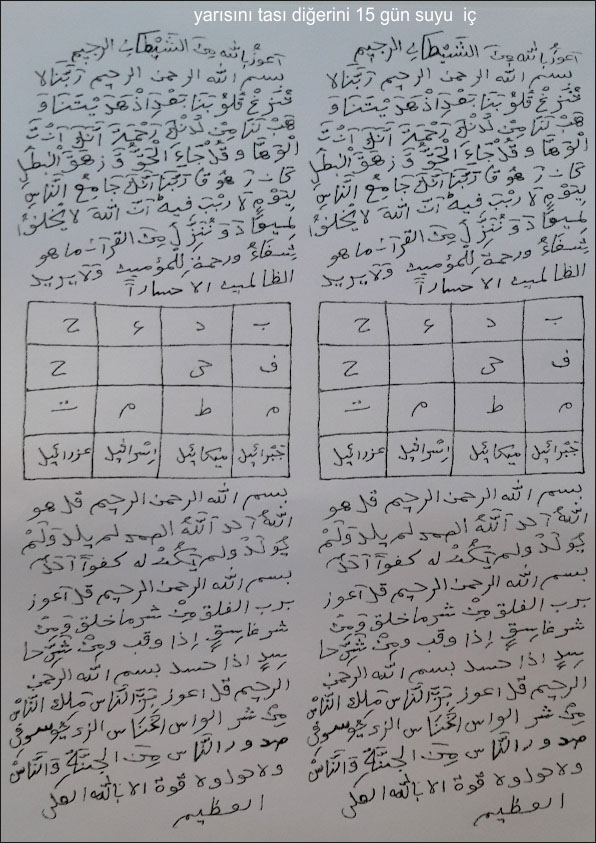 yarısını tası diğerini 15 gün suyu iç
آعوز بالله مِنَ الشَّيْطَانِ الرحيم
بسم الله الرحمن الرحيم رَبَّنَا لا
تُزِغْ قُلُوبَنَا بَعْدَ اذْ هَدَيْتَنَا وَ
هَبْ لَنَا مِنْ لَدُنْكَ رَحْمَةً اَنَّكَ اَنْتَ
الْوَهَّا وَ قُلْ جَاءَ الْحَقُّ وَ زَهَقَ الْبَطِلِ
كَانَ زَهُوقًا رَبَّنَا اَنَّكَ جَامِعُ النَّاسِ
لِيَوْمٍ لا رَيْبَ فِيهِ اَنَّ اللهَ لا يُخْلِفُ
لِميعَادَ وَ نُنَزِّلُ مِنَ القرآن ما هو
شِفَاءٌ ورحمة لِلمؤمنين وَلا يزيد
الظالمين الا حساراً
ب د ع ح
ف حى ح
م ط م ت
جَبْرائيل ميكائيل اِسْرافيل عزرائيل
بسم الله الرحمن الرحيم قل هو
اللهُ آحد اَللهُ الصمد لم يلد وَلَمْ
يُولَدْ ولم يَكُنْ له كفواً اَحَدٌ
بسم الله الرحمن الرحيم قل اعوز
برب الفلق مِنْ شر ما خلق وَمِنْ
شر غاسقٍ اذا وقب ومِنْ شَرِّ حا
سِدٍ اذا حسد بسم الله الرحمن
الرحيم قل اعوز بِرَبِّ النَّاس مَلِك النَّاسْ
مِنْ شر الواس الْخَنَّاس الزى يُوَسوِسُ فى
صدور النَّاس مِنَ الجِنَّةِ وَالنَّاسْ
ولا حول ولا قوة الا بالله العلى
العظيم
آعوز بالله مِنَ الشَّيْطَانِ الرحيم
بسم الله الرحمن الرحيم رَبَّنَا لا
تُزِغْ قُلُوبَنَا بَعْدَ اذْ هَدَيْتَنَا وَ
هَبْ لَنَا مِنْ لَدُنْكَ رَحْمَةً اَنَّكَ اَنْتَ
الْوَهَّا وَ قُلْ جَاءَ الْحَقُّ وَ زَهَقَ الْبَطِلِ
كَانَ زَهُوقًا رَبَّنَا اَنَّكَ جَامِعُ النَّاسِ
لِيَوْمٍ لا رَيْبَ فِيهِ اَنَّ اللهَ لا يُخْلِفُ
لِميعَادَ وَ نُنَزِّلُ مِنَ القرآن ما هو
شِفَاءٌ ورحمة لِلمؤمنين وَلا يزيد
الظالمين الا حساراً
ب د ع ح
ف حى ح
م ط م ت
جَبْرائيل ميكائيل اِسْرافيل عزرائيل
بسم الله الرحمن الرحيم قل هو
اللهُ آحد اَللهُ الصمد لم يلد وَلَمْ
يُولَدْ ولم يَكُنْ له كفواً اَحَدٌ
بسم الله الرحمن الرحيم قل اعوز
برب الفلق مِنْ شر ما خلق وَمِنْ
شر غاسقٍ اذا وقب ومِنْ شَرِّ حا
سِدٍ اذا حسد بسم الله الرحمن
الرحيم قل اعوز بِرَبِّ النَّاس مَلِك النَّاسْ
مِنْ شر الواس الْخَنَّاس الزى يُوَسوِسُ فى
صدور النَّاس مِنَ الجِنَّةِ وَالنَّاسْ
ولا حول ولا قوة الا بالله العلى
العظيم